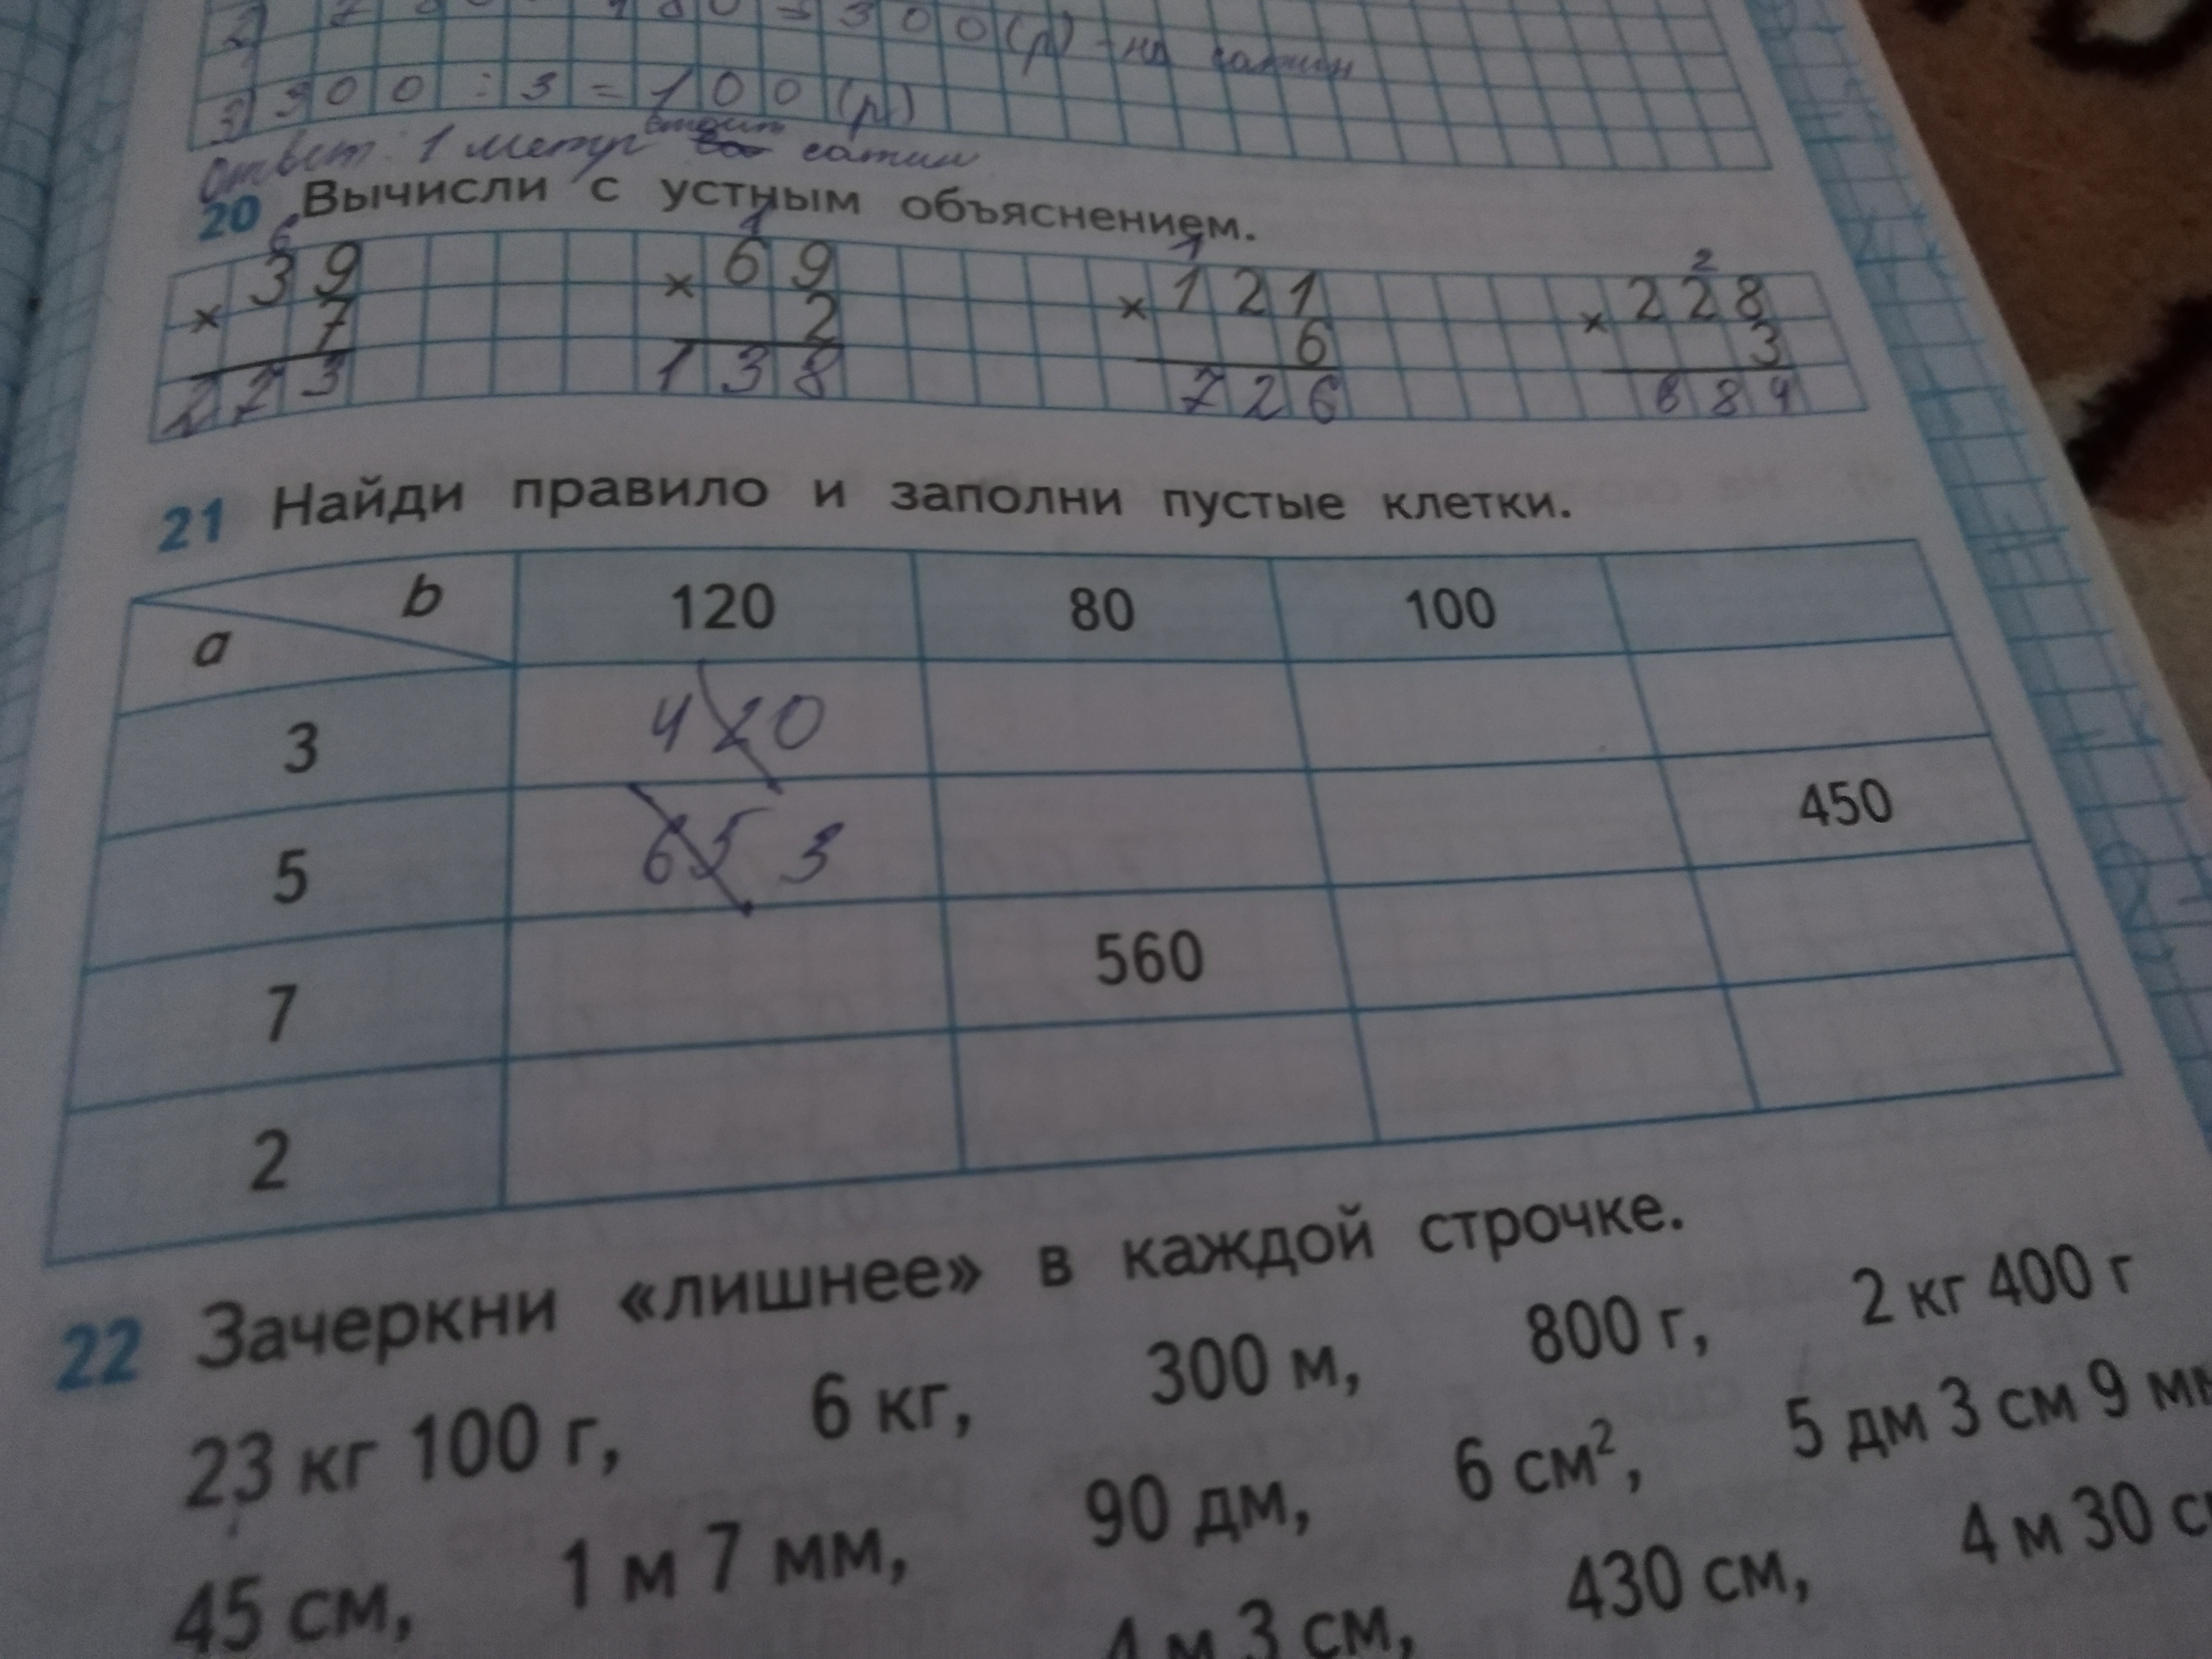 300(р) - на сатин
3) 300 : 3 = 100 (р)
стоит
Ответ: 1 метр сатин
20 Вычисли с устным объяснением.
6 1 1 2
39 69 121 228
× 7 × 2 × 6 × 3
223 138 726 684
21 Найди правило и заполни пустые клетки.
b 120 80 100
a
3 420
5 653 450
7 560
2
22 Зачеркни «лишнее» в каждой строчке.
23 кг 100 г, 6 кг, 300 м, 800 г, 2 кг 400 г
45 см, 1 м 7 мм, 90 дм, 6 см², 5 дм 3 см 9 мм
4 м 3 см, 430 см, 4 м 30 с